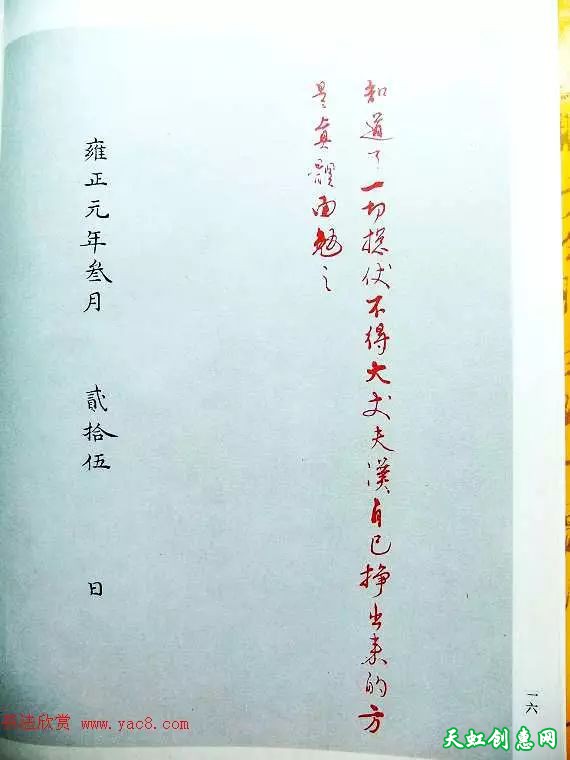 知道了一切摠伏不得大丈夫漢自己掙出來的方
是真體面勉之
雍正元年叁月 貳拾伍 日
一六
书法欣赏 www.yac8.com
天虹创惠网